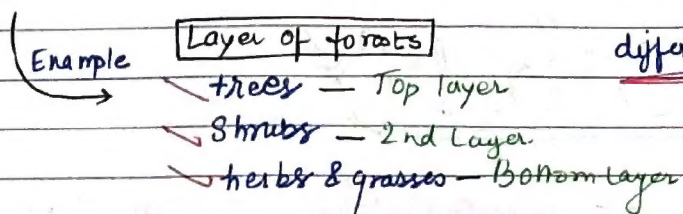 Layer of forests
Example
trees — Top layer
Shrubs — 2nd Layer.
herbs & grasses — Bottom layer